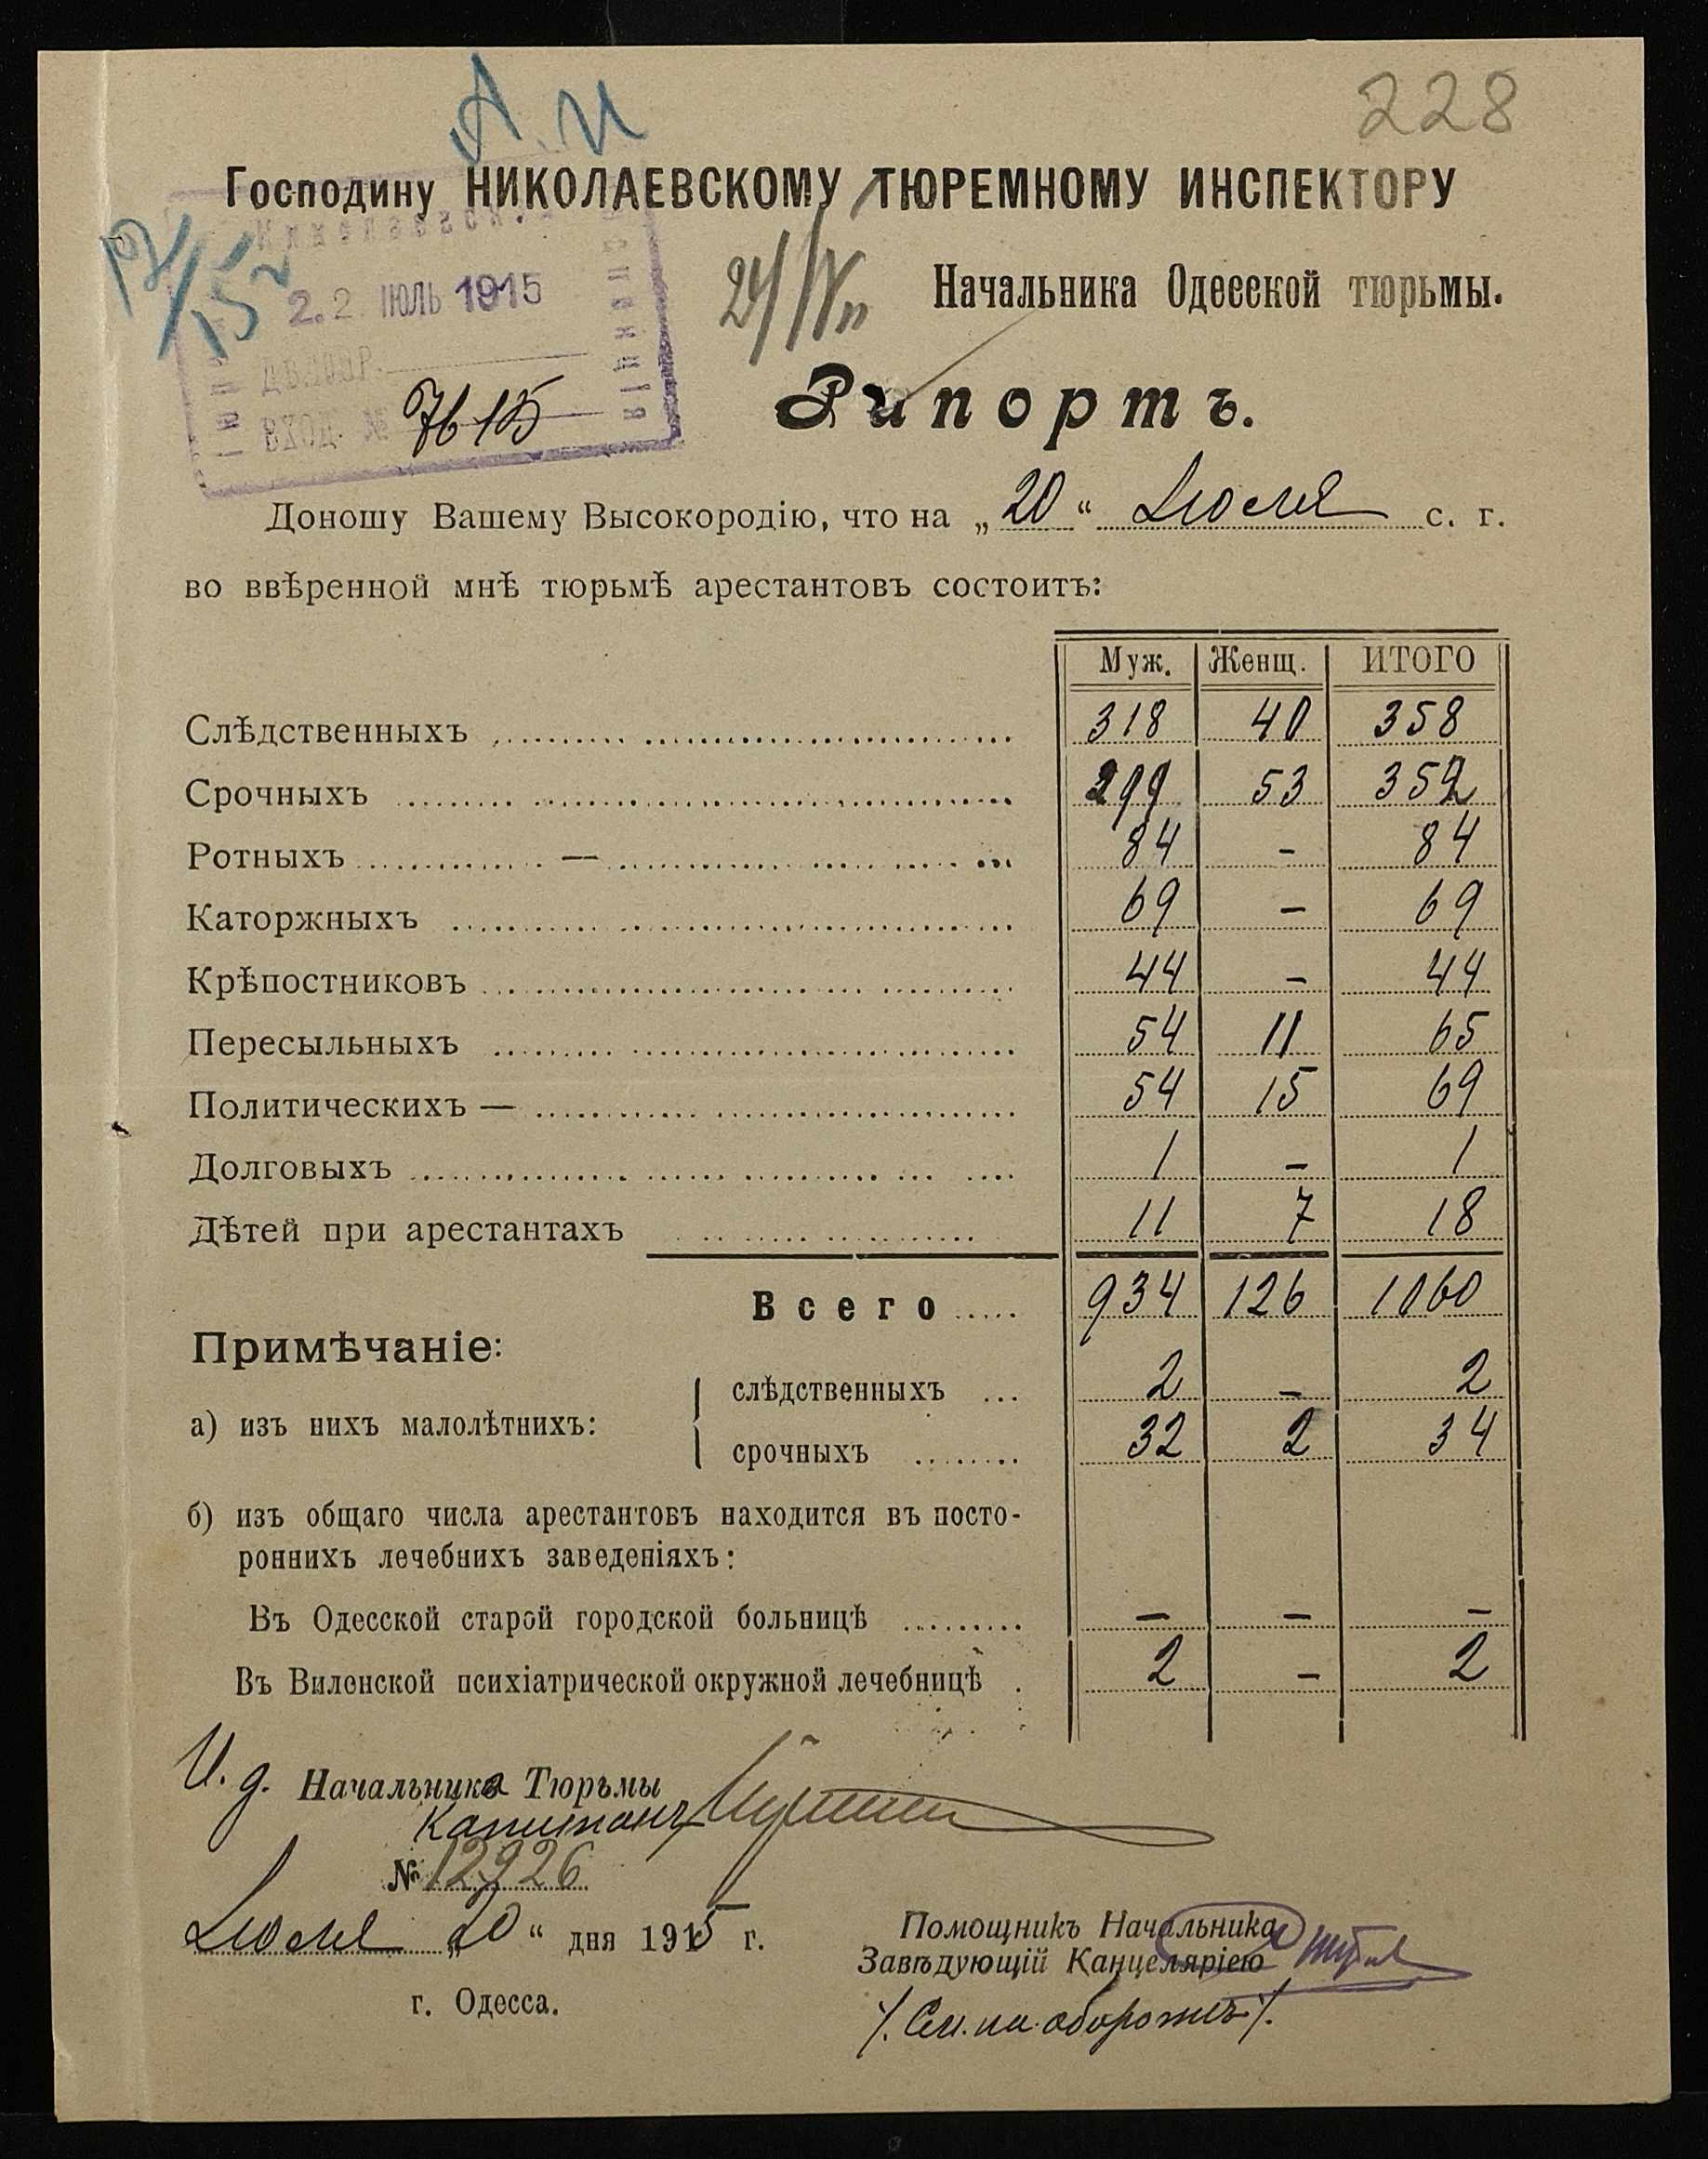 А. И
228
Господину НИКОЛАЕВСКОМУ ТЮРЕМНОМУ ИНСПЕКТОРУ
22 ІЮЛЬ 1915
ДѢЛОПР.
ВХОД. № 7615
Начальника Одесской тюрьмы.
24/VII
Рапортъ.
Доношу Вашему Высокородію, что на „20“ Іюля с. г.
во ввѣренной мнѣ тюрьмѣ арестантовъ состоитъ:
Муж. Женщ. ИТОГО
Слѣдственныхъ 318 40 358
Срочныхъ 299 53 352
Ротныхъ — 84 - 84
Каторжныхъ 69 - 69
Крѣпостниковъ 44 - 44
Пересыльныхъ 54 11 65
Политическихъ — 54 15 69
Долговыхъ 1 - 1
Дѣтей при арестантахъ 11 7 18
Всего 934 126 1060
Примѣчаніе:
а) изъ нихъ малолѣтнихъ:
слѣдственныхъ 2 - 2
срочныхъ 32 2 34
б) изъ общаго числа арестантовъ находится въ посто-
роннихъ лечебнихъ заведеніяхъ:
Въ Одесской старой городской больницѣ - - -
Въ Виленской психіатрической окружной лечебницѣ 2 - 2
И. д. Начальника Тюрьмы
Капитанъ
№ 12926
Іюля „20“ дня 1915 г.
г. Одесса.
Помощникъ Начальника
Завѣдующій Канцеляріею
/. См. на оборотѣ /.